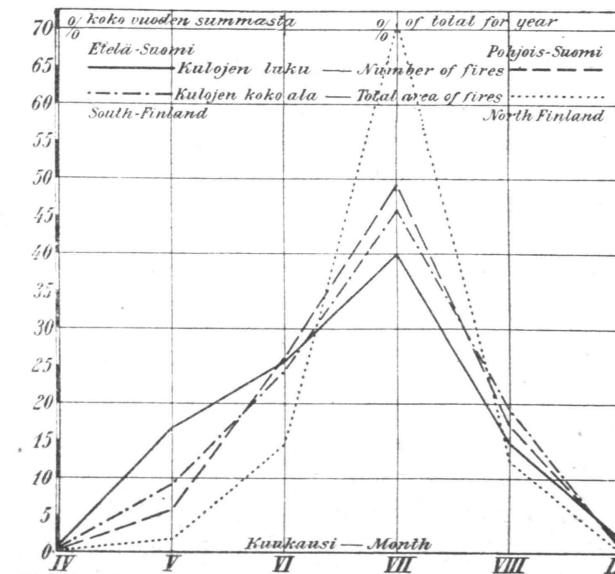 % koko vuoden summasta % of total for year
Etelä-Suomi Pohjois-Suomi
Kulojen luku — Number of fires
Kulojen koko ala — Total area of fires
South-Finland North Finland
70
65
60
55
50
45
40
35
30
25
20
15
10
5
0
Kuukausi — Month
IV V VI VII VIII